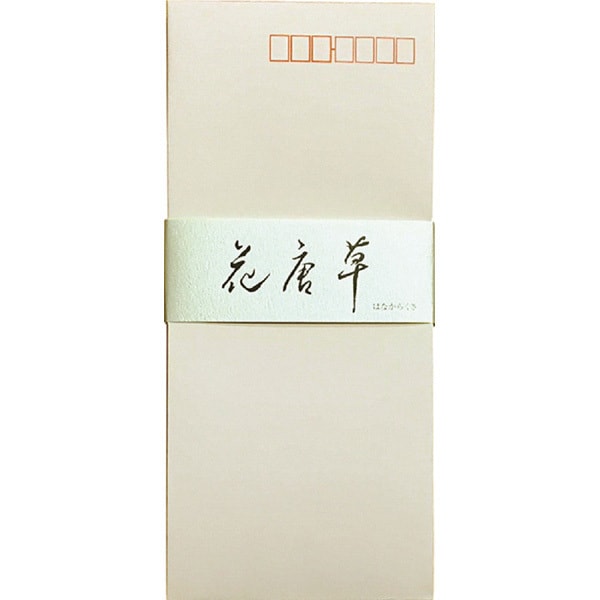 花唐草
はなからくさ